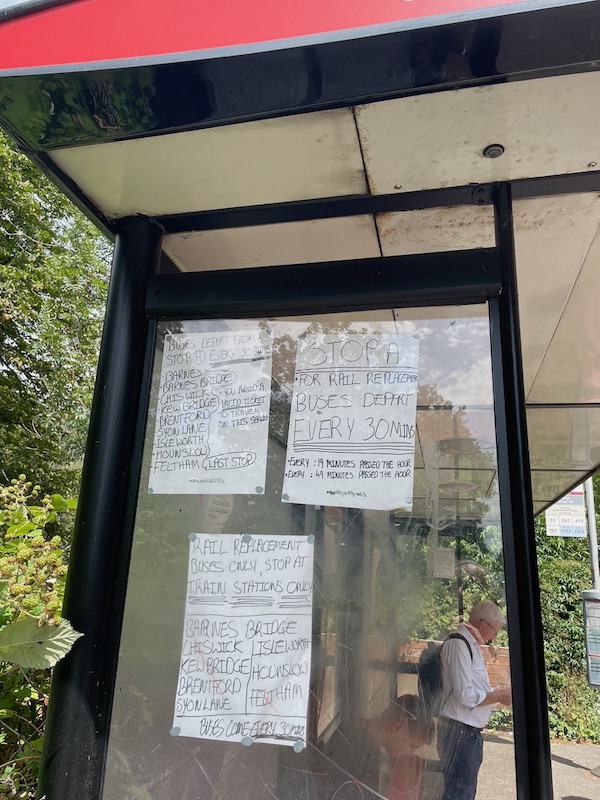 BUSES DEPART FROM
STOP A EVERY 30
BARNES
- BARNES BRIDGE
CHISWICK
- KEW BRIDGE
BRENTFORD
SYON LANE
ISLEWORTH
HOUNSLOW
FELTHAM (LAST STOP)
YOU NEED A
VALID TICKET
TO TRAVEL
ON THIS
STOP A
• FOR RAIL REPLACEMENT
BUSES DEPART
EVERY 30 MINS
• EVERY :19 MINUTES PASSED THE HOUR
• EVERY :49 MINUTES PASSED THE HOUR
RAIL REPLACEMENT
BUSES ONLY STOP AT
TRAIN STATIONS ONLY
BARNES BRIDGE
CHISWICK
KEW BRIDGE
BRENTFORD
SYON LANE
ISLEWORTH
HOUNSLOW
FELTHAM
BUSES COME EVERY 30 MINS